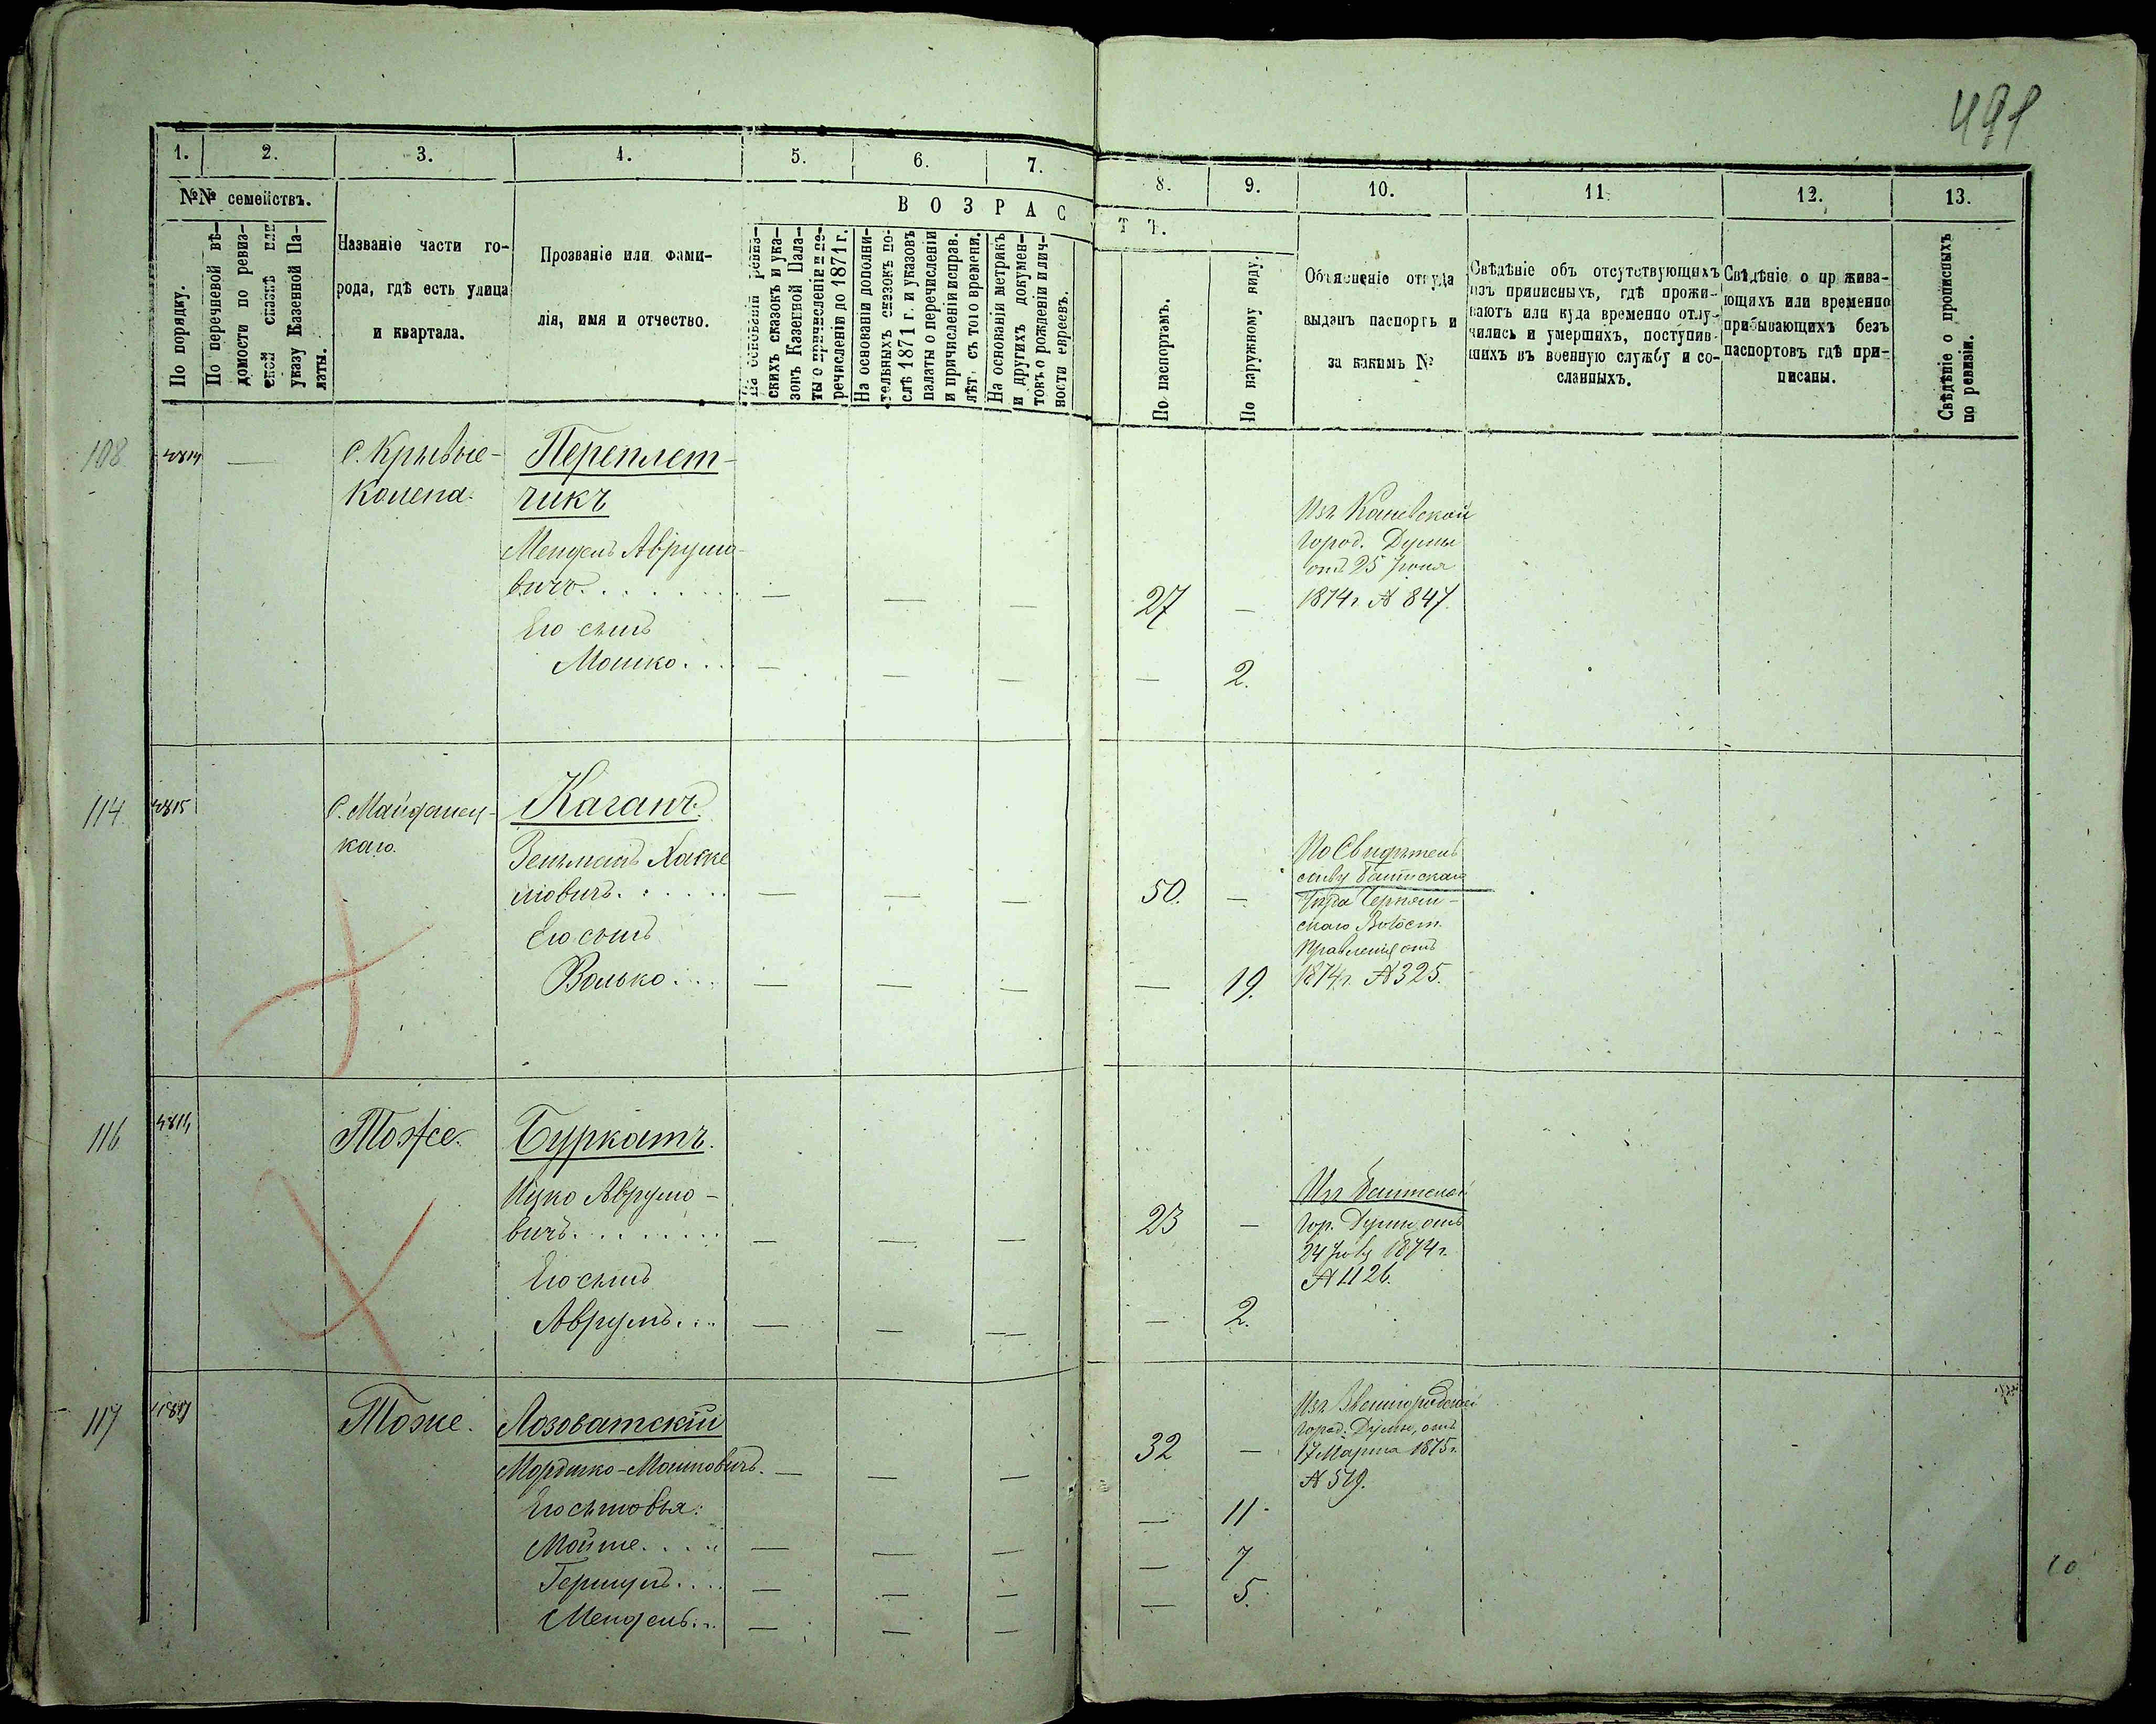 491
1. 2. 3. 4. 5. 6. 7. 8. 9. 10. 11. 12. 13.
№№ семействъ.
По порядку.
По перечневой вѣ-
домости по ревиз-
ской сказкѣ или
указу Казенной Па-
латы.
Названіе части го-
рода, гдѣ есть улица
и квартала.
Прозваніе или фами-
лія, имя и отчество.
ВОЗРАСТЪ.
На основаніи ревиз-
скихъ сказокъ и ука-
зовъ Казенной Пала-
ты о причисленіи и пе-
речисленіи до 1871 г.
На основаніи дополни-
тельныхъ сказокъ по-
слѣ 1871 г. и указовъ
палаты о перечисленіи
и причисленіи исправ.
лѣт. съ того времени.
На основаніи метрикъ
и другихъ докумен-
товъ о рожденіи и лич-
ности евреевъ.
По паспортамъ.
По наружному виду.
Объясненіе откуда
выданъ паспортъ и
за какимъ №
Свѣдѣніе объ отсутствующихъ
изъ приписныхъ, гдѣ прожи-
ваютъ или куда временно отлу-
чились и умершихъ, поступив-
шихъ въ военную службу и со-
сланныхъ.
Свѣдѣніе о прожива-
ющихъ или временно
прибывающихъ безъ
паспортовъ гдѣ при-
писаны.
Свѣдѣніе о прописныхъ
по ревизіи.
108 4814 — С. Крывые- Переплет-
Колена. чикъ
Мендель Аврумо-
вичъ. — — — 27 —
Его сынъ
Мошко. — — — — 2.
Изъ Каневской
Город. Думы
отъ 25 Іюня
1874 г. № 847.
114 4815 С. Майданец- Каганъ.
каго. Зельманъ Хаске
лювичъ. — — — 50. —
Его сынъ
Волько. — — — — 19.
По Свидѣтель
ству Балтскаго
Уѣзда
скаго Волост.
Правленія отъ
1874 г. № 325.
116 Тоже. Буркатъ.
Ицко Аврумо-
вичъ. — — — 23 —
Его сынъ
Аврумъ. — — — — 2.
Изъ Балтской
Гор. Думы отъ
24 1874 г.
№ 1126.
117 4817 Тоже. Лозоватскій
Мордко-Мошковичъ. — — — 32 —
Его сыновья: — 11
Мойше. — — — — 7
Гершуль. — — — — 5.
Мендель. — — —
Изъ Звенигородской
Город. Думы, отъ
17 Марта 1875 г.
№ 519.
10